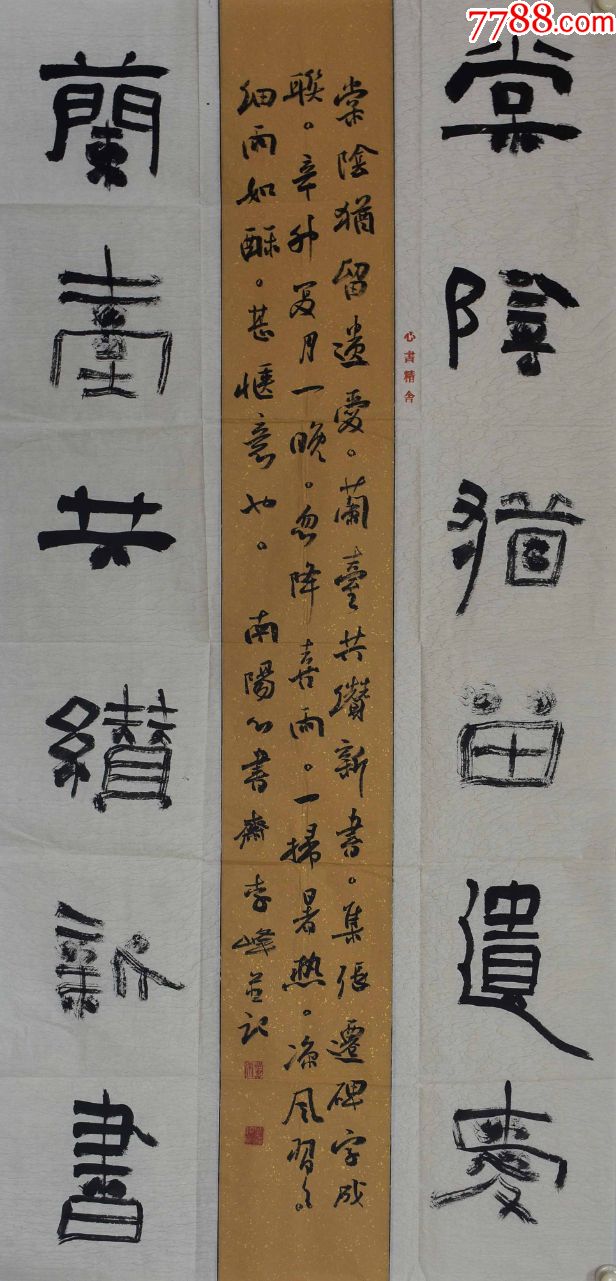 7788.com
棠陰猶留遺愛
心書精舍
棠陰猶留遺愛。蘭臺共纘新書。集張遷碑字成
聯。辛卯夏月一晚。忽降喜雨。一掃暑热。凉風習々。
細雨如酥。甚惬意也。南陽心書齋李峰並記
蘭臺共纘新書